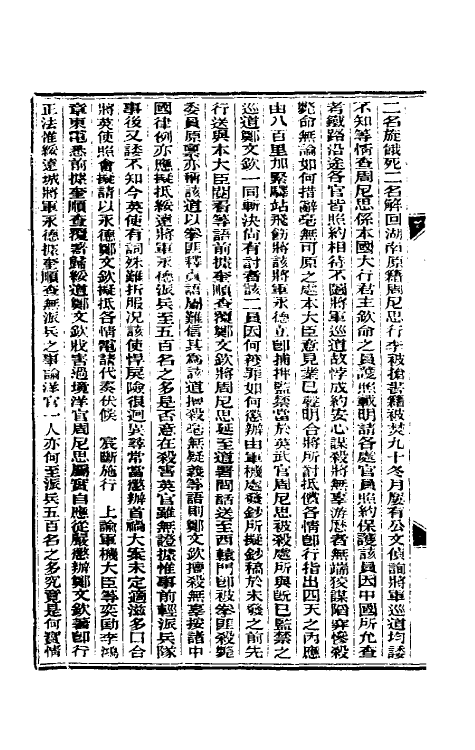 二名旋餓死二名解回湖南原籍周尼思行李被搶書籍被焚九十冬月屢有公文偵詢將軍巡道均諉
不知等情查周尼思係本國大行君主欽命之員護照載明請各處官員照約保護該員因中國所允查
看鐵路沿途各官皆照約相待不圖將軍巡道故悖成約安心謀殺將無辜游歷者無端狡謀陷穽慘殺
斃命無論如何措辭毫無可原之處本大臣意見業已聲明合將所討抵償各情即行指出四天之內應
由八百里加緊驛站飛飭將該將軍永德立即捕拏監禁當於英武官周尼思被殺處所與既已監禁之
巡道鄭文欽一同斬決向有討者該二員因何被罪如何懲辦由軍機處發鈔所擬鈔稿於未發之前先
行送與本大臣閱看等語前據奎順查覆鄭文欽將周尼思延至道署問話送至西轅門即被拳匪殺斃
委員原稟亦稱該道以拳匪釋貞語屬難信其為該道擅殺毫無疑義等語則鄭文欽擅殺無辜按諸中
國律例亦應擬抵綏遠將軍永德派兵至五百名之多是否意在殺害英官雖無證據惟事前輕派兵隊
事後又諉不知今英使有詞殊難折服况該使悍戾險很迥異尋常當懲辦首禍大案未定適滋多口合
將英使照會擬請以永德鄭文欽擬抵各情電請代奏伏候　宸斷施行　上諭軍機大臣等奕劻李鴻
章東電悉前據奎順查覆署歸綏道鄭文欽戕害過境洋官周尼思屬實自應從嚴懲辦鄭文欽著即行
正法惟綏遠城將軍永德據奎順查無派兵之事諭洋官一人亦何至派兵五百名之多究竟是何實情